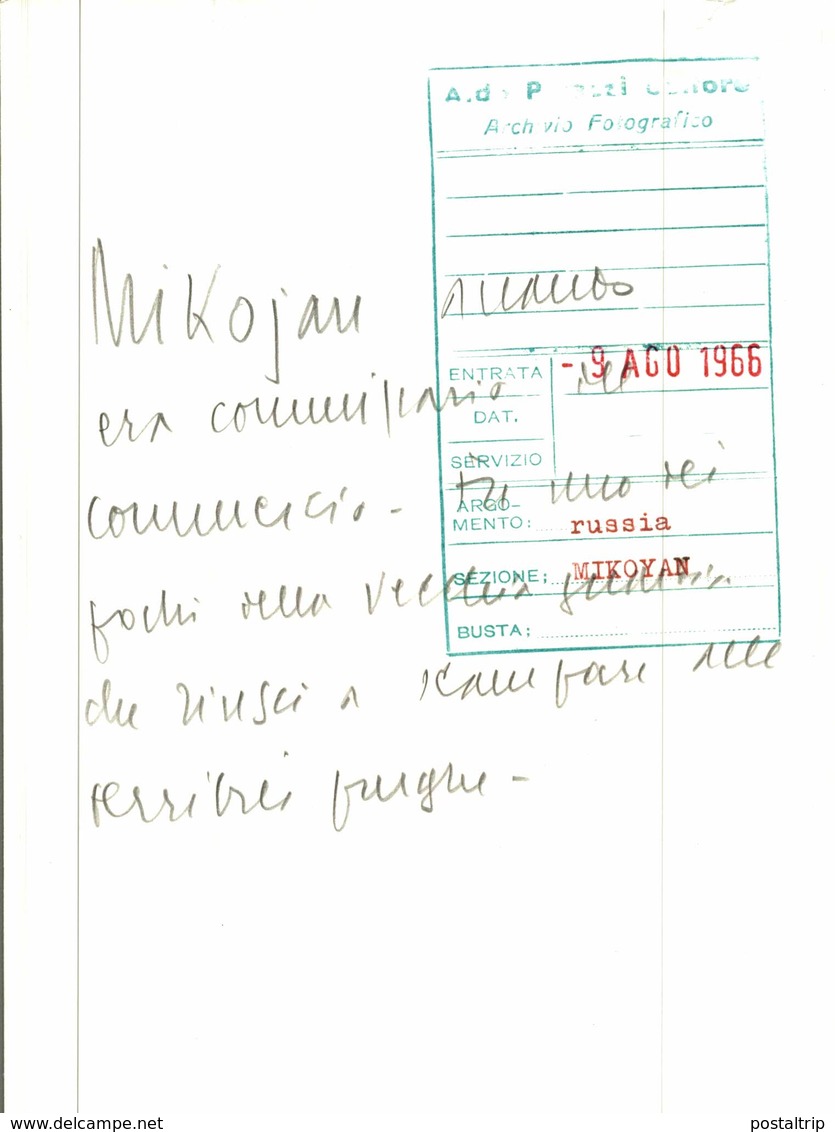 A.de P azzi Editore
Archivio Fotografico
Mikojan quando
ENTRATA - 9 AGO 1966
era commissario al
DAT.
SERVIZIO
commercio - Fu uno dei
ARGO-
MENTO: russia
SEZIONE: MIKOYAN
pochi della vecchia guardia
BUSTA:
che riuscì a scampare alle
terribili purghe -
delcampe.net
postaltrip